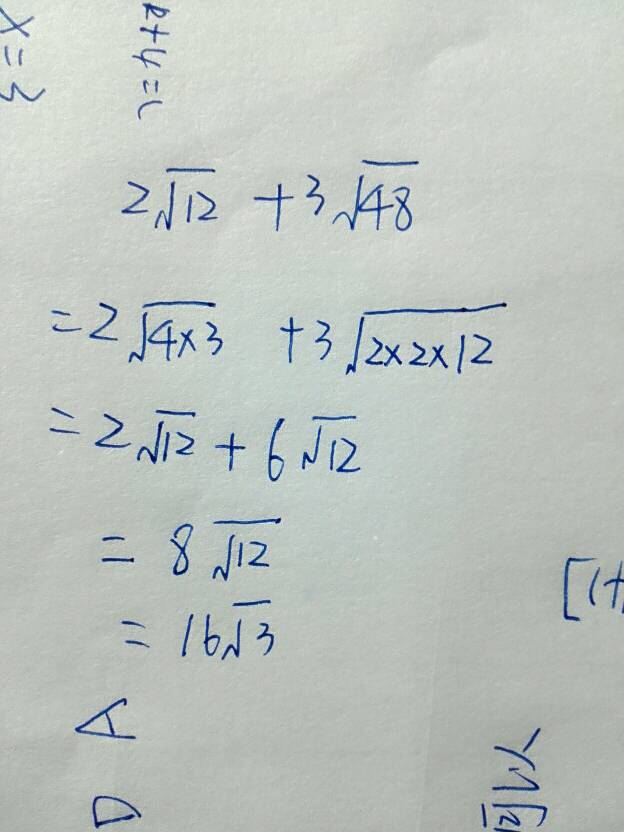 x=3
2√12 +3√48
=2√4×3 +3√2×2×12
=2√12+6√12
=8√12
=16√3
[1+
A
D
可以